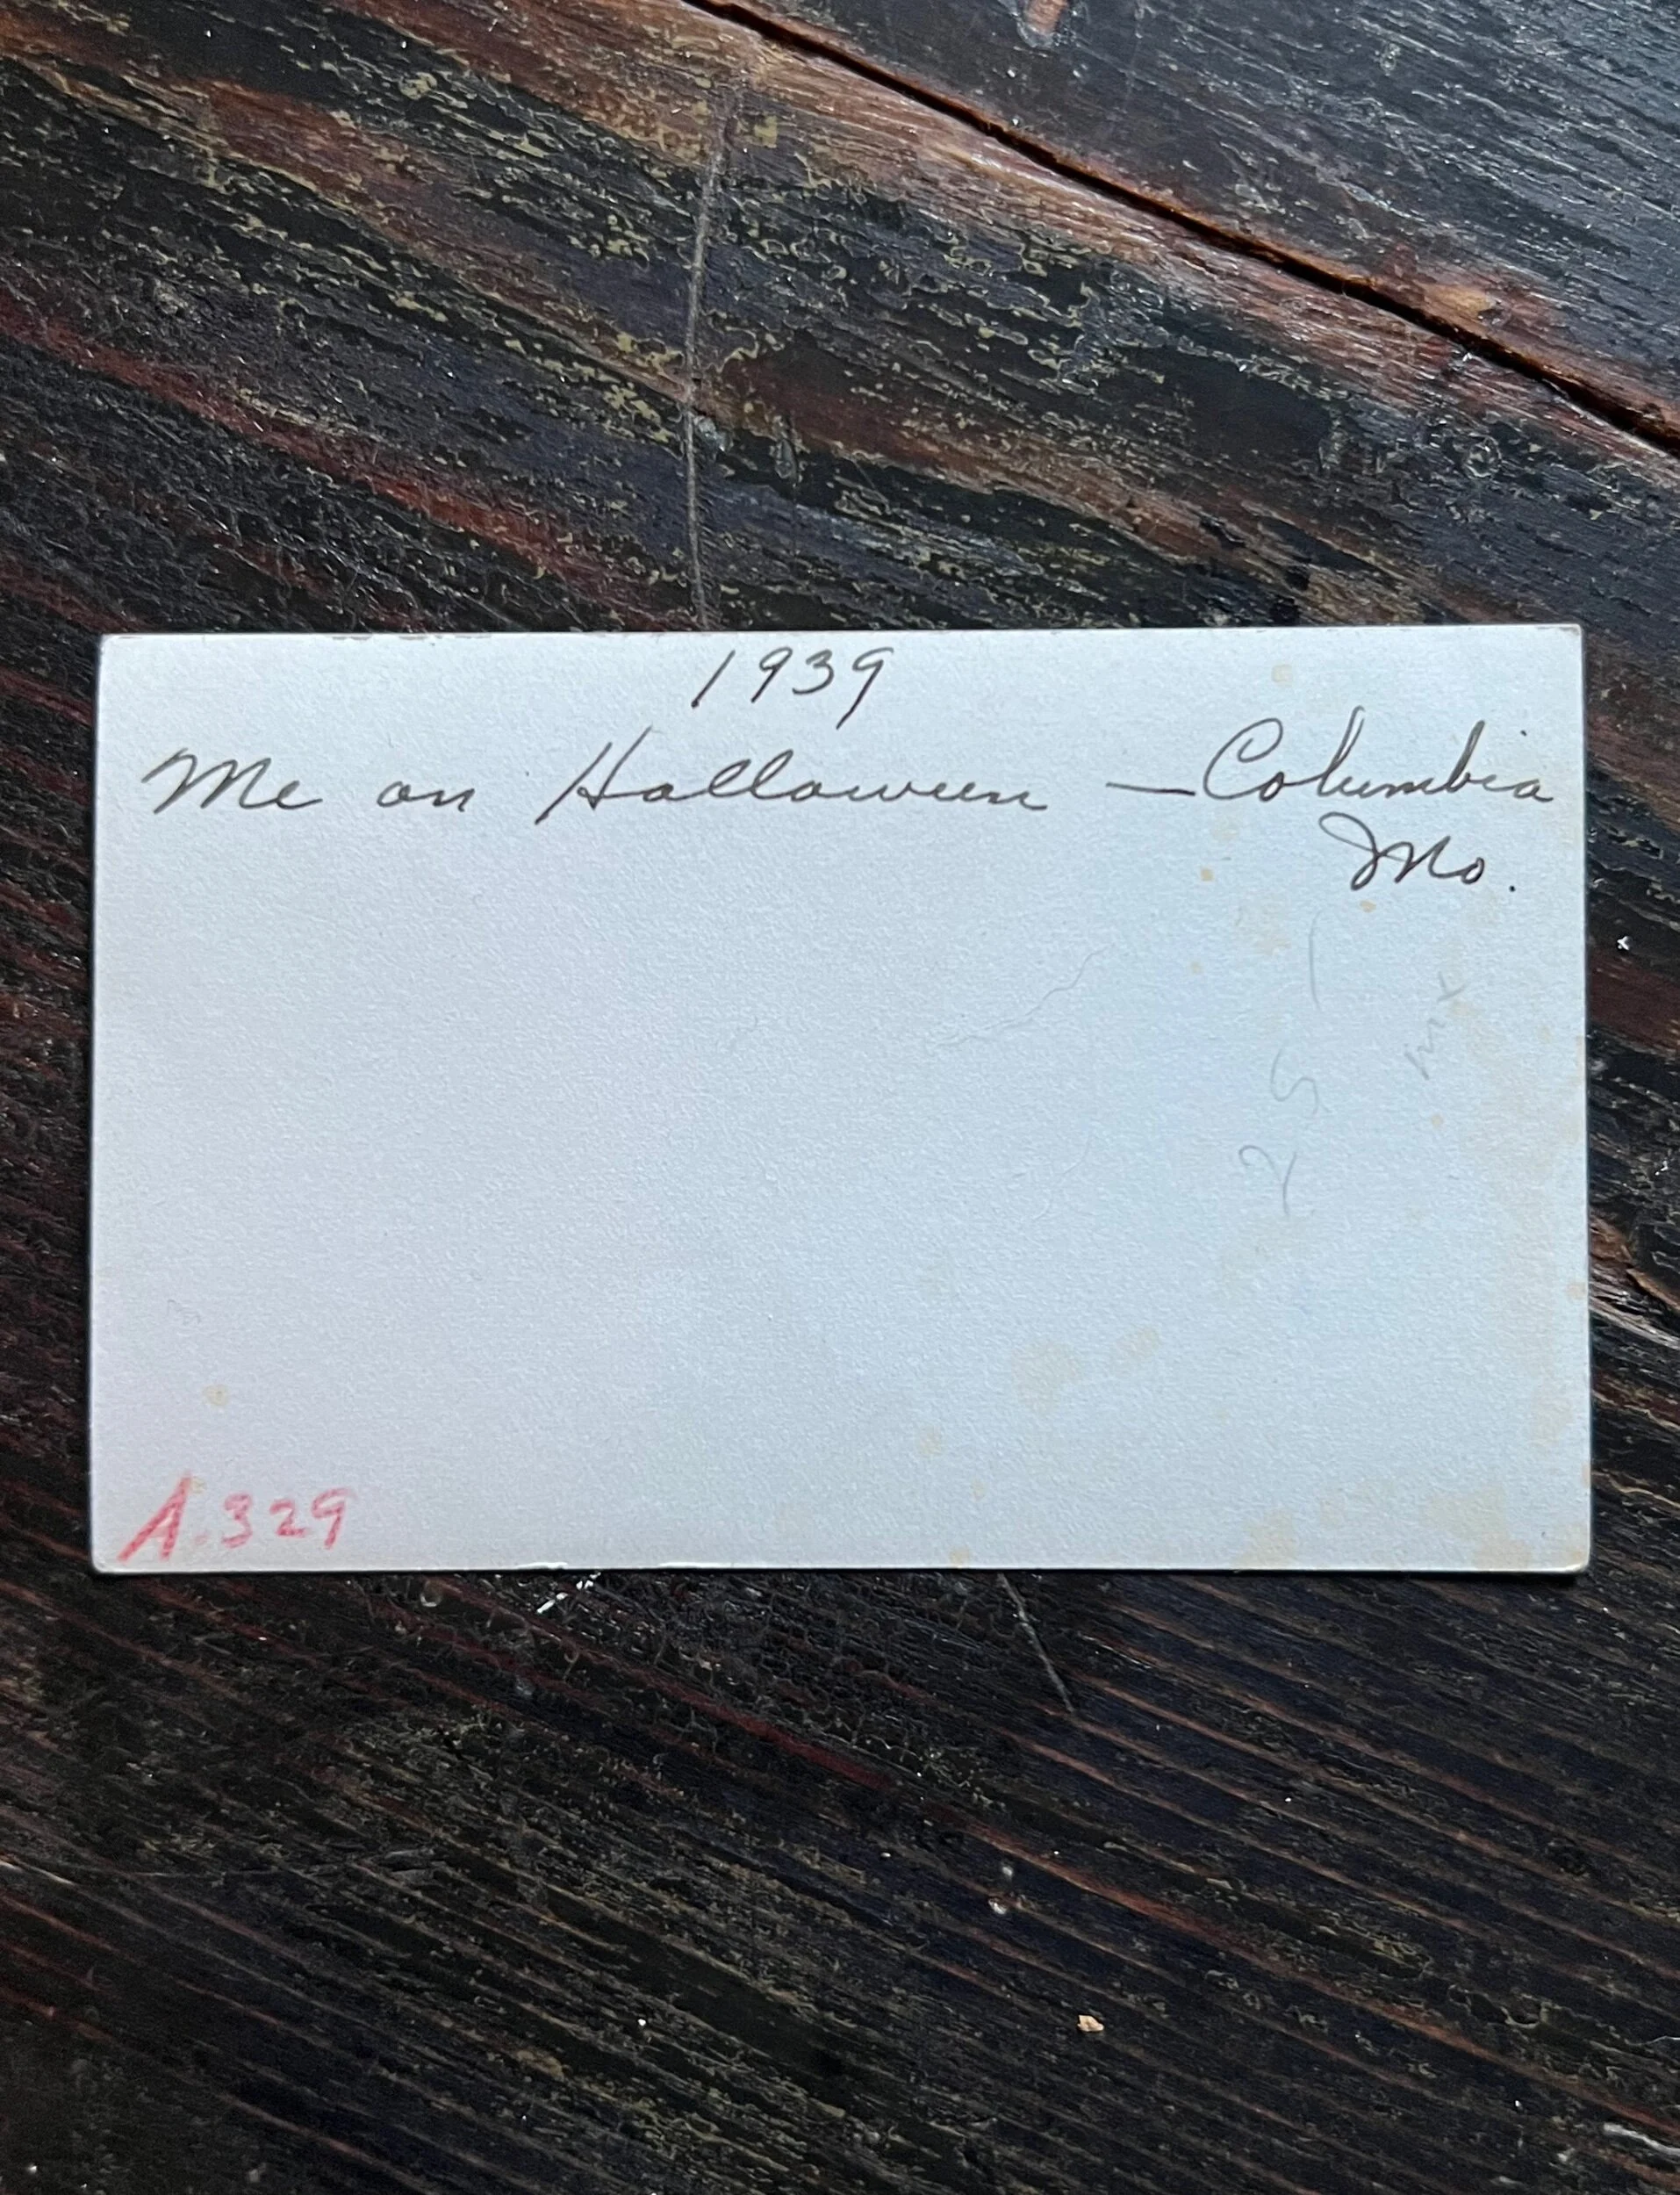 1939
Me on Halloween — Columbia
Mo.
A.329